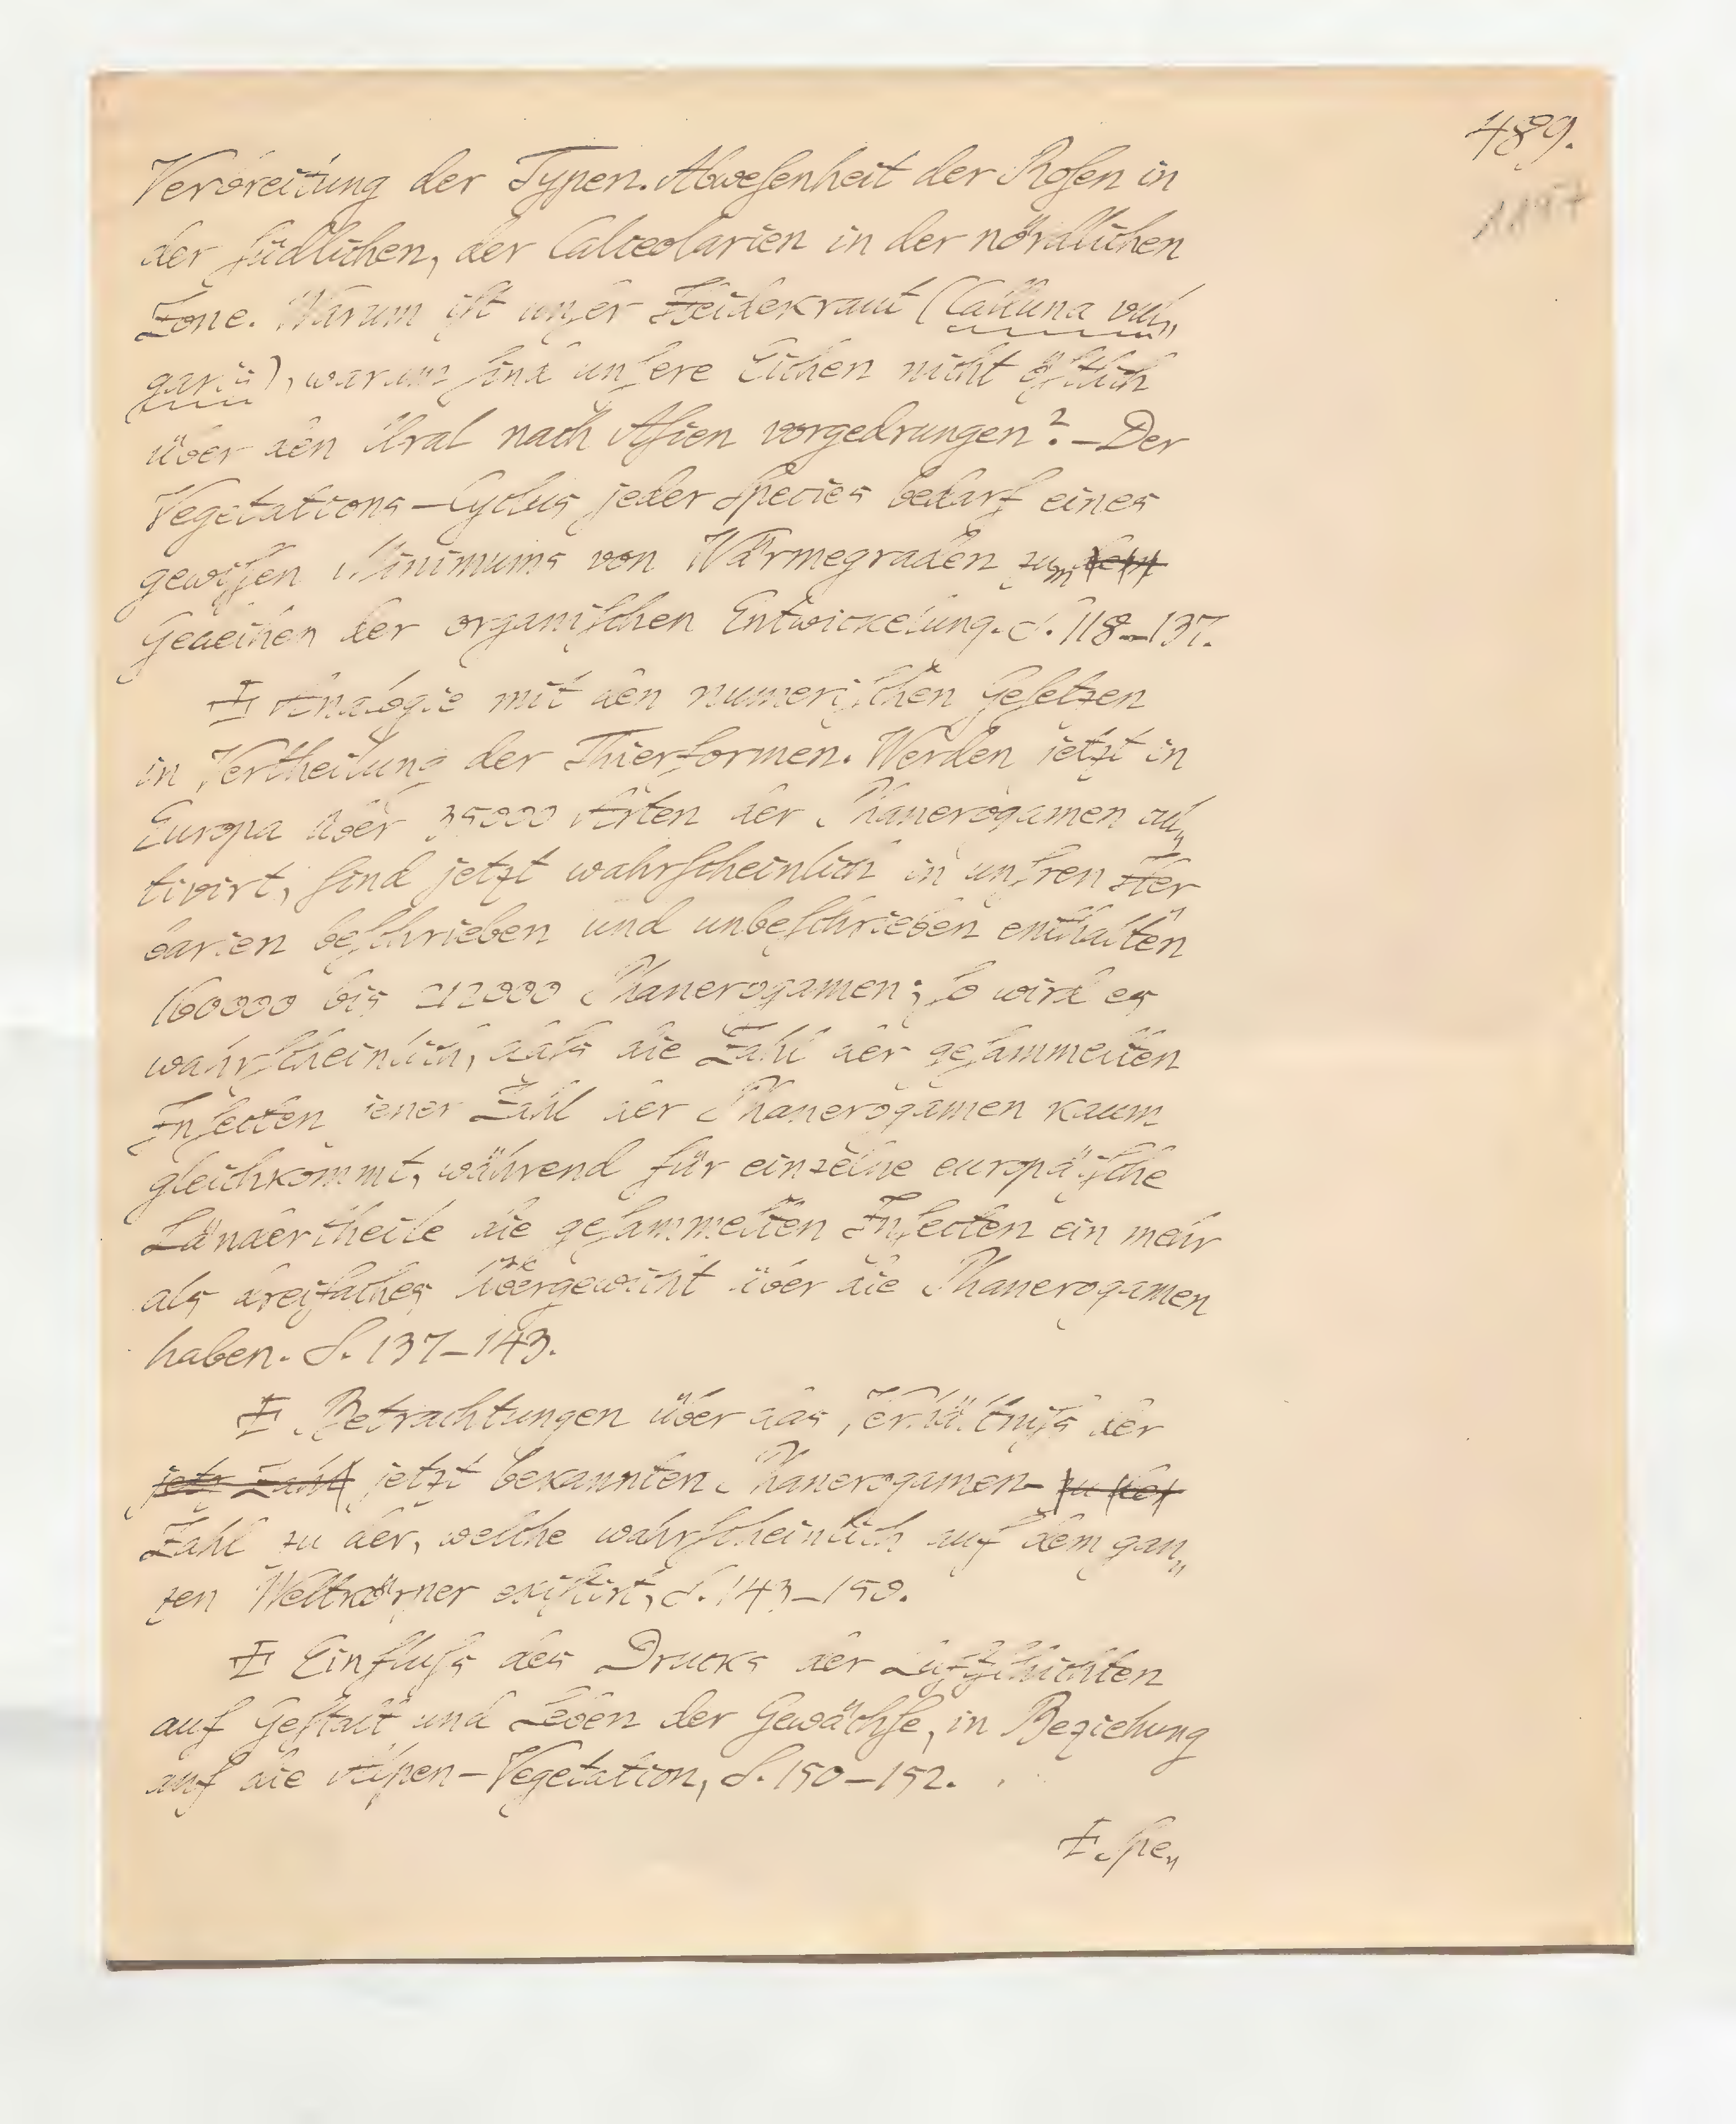 489.
1197
Verbreitung der Typen. Abweſenheit der Roſen in
der ſüdlichen, der Calceolarien in der nördlichen
Zone. Warum iſt unſer Heidekraut (Calluna vul„
garis), warum ſind unſere Eichen nicht öſtlich
über den Ural nach Aſien vorgedrungen? – Der
Vegetations-Cyclus jeder Species bedarf eines
gewiſſen Minimums von Wärmegraden zum
Gedeihen der organiſchen Entwickelung. S. 118–137.
Analogie mit den numeriſchen Geſetzen
in Vertheilung der Thierformen. Werden jetzt in
Europa über 35000 Arten der Phanerogamen cul„
tivirt, ſind jetzt wahrſcheinlich in unſren Her
barien beſchrieben und unbeſchrieben enthalten
160000 bis 212000 Phanerogamen; ſo wird es
wahrſcheinlich, daſs die Zahl der geſammelten
Inſecten jener Zahl der Phanerogamen kaum
gleichkommt, während für einzelne europäiſche
Ländertheile die geſammelten Inſecten ein mehr
als dreifaches Übergewicht über die Phanerogamen
haben. S. 137–143.
Betrachtungen über das Verhältniſs der
jetz Zahl jetzt bekannten Phanerogamen- zu der
Zahl zu der, welche wahrſcheinlich auf dem gan„
zen Weltkörper exiſtirt, S. 143–150.
Einfluſs des Drucks der Luftſchichten
auf Geſtalt und Leben der Gewächſe, in Beziehung
auf die Alpen-Vegetation, S. 150–152.
Spe„